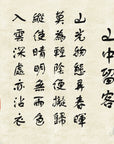 山中留客
山光物態弄春暉
莫為輕陰便擬歸
縱使晴明無雨色
入雲深處亦沾衣